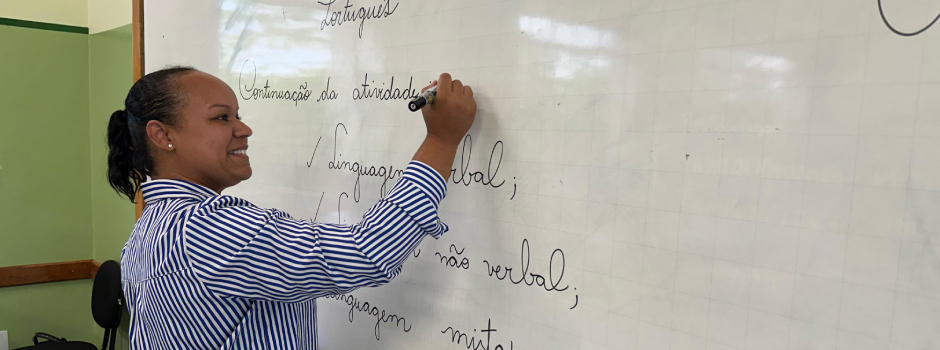 Português
Continuação da atividade
✓ Linguagem verbal;
não verbal;
linguagem mista